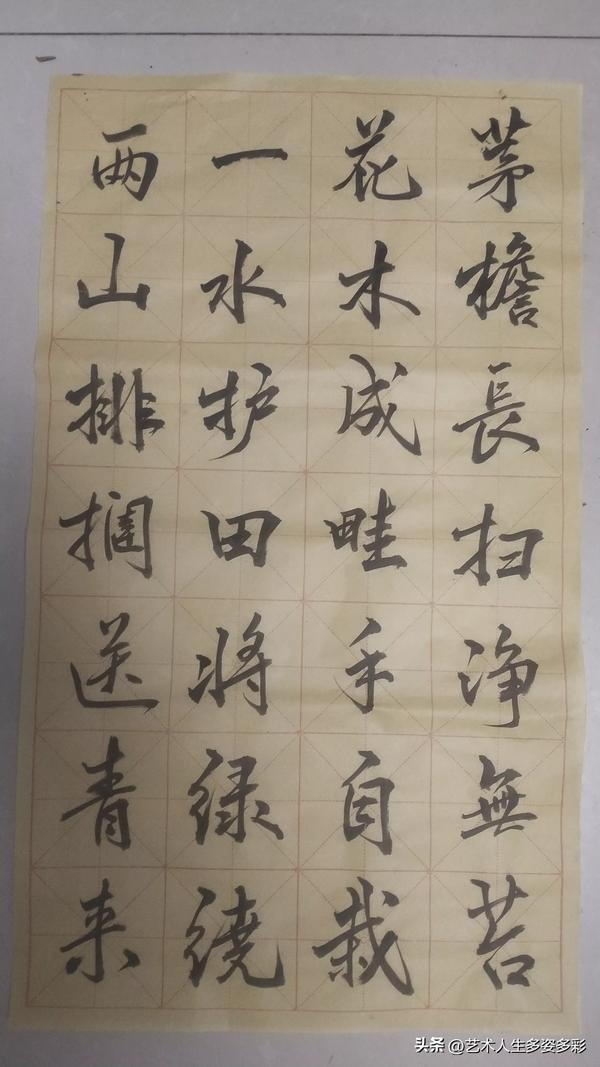 茅檐長扫净無苔
花木成畦手自栽
一水护田将绿绕
两山排送青来
头条 @艺术人生多姿多彩